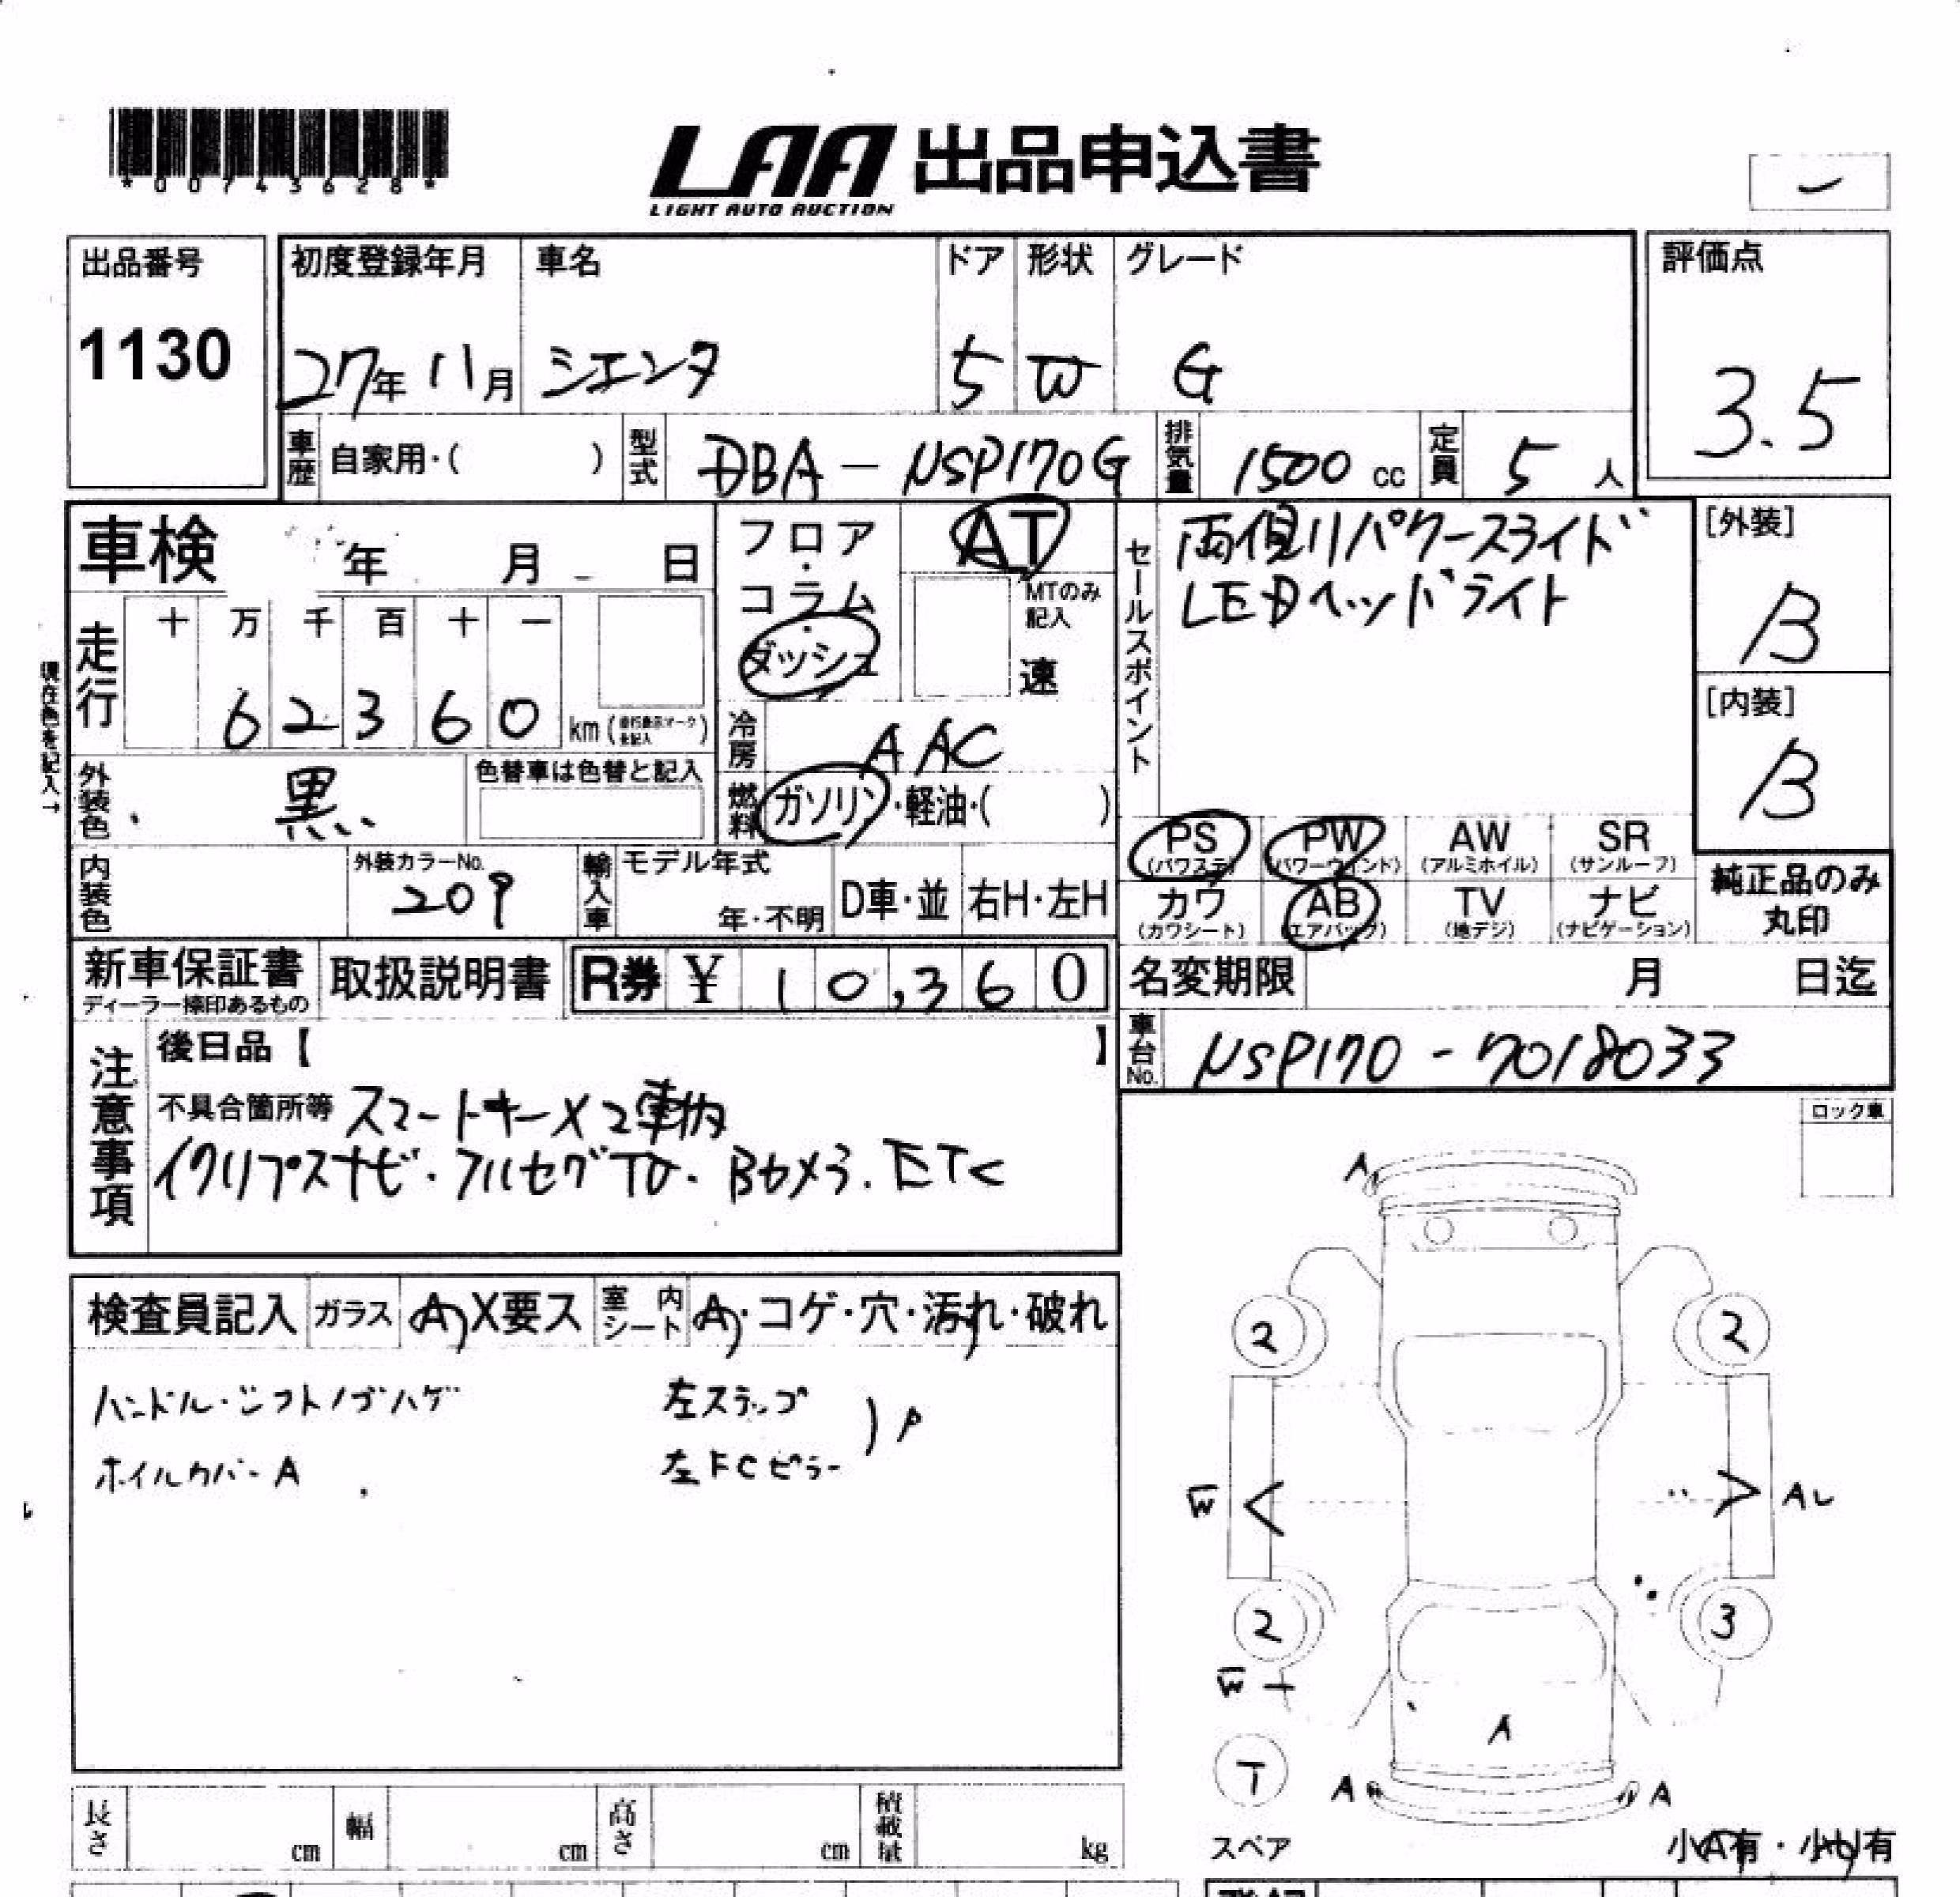 *00743628*
LAA 出品申込書
LIGHT AUTO AUCTION
出品番号
1130
初度登録年月
27年11月
車名
シエンタ
ドア
5
形状
W
グレード
G
評価点
3.5
車歴 自家用・( )
型式 DBA-NSP170G
排気量 1500 cc
定員 5 人
車検 年 月 日
現在色を記入→
走行
十 万 千 百 十 一
6 2 3 6 0 km
フロア・
コラム・
ダッシュ
AT
MTのみ
記入
速
冷房 AAC
燃料 ガソリン・軽油・( )
セールスポイント
両側パワースライド
LEDヘッドライト
[外装]
B
[内装]
B
外装色 黒
色替車は色替と記入
内装色
外装カラーNo.
209
輸入車
モデル年式
年・不明
D車・並
右H・左H
PS
(パワステ)
PW
(パワーウインド)
AW
(アルミホイル)
SR
(サンルーフ)
カワ
(カワシート)
AB
(エアバック)
TV
(地デジ)
ナビ
(ナビゲーション)
純正品のみ
丸印
新車保証書
ディーラー捺印あるもの
取扱説明書
R券 ¥ 10,360
名変期限 月 日迄
車台No. NSP170-7018033
注意事項
後日品【 】
不具合箇所等 スマートキー×2車内
イクリプスナビ・フルセグTV・Bカメラ.ETC
ロック車
検査員記入
ガラス A X要ス
室内シート A・コゲ・穴・汚れ・破れ
ハンドル・シフトノブハゲ
ホイルカバーA
左ステップ
左FCピラー
)P
A
2
2
W
<
>
2
3
W
A
T
A
A
スペア
小A有・小U有
長さ cm
幅 cm
高さ cm
積載量 kg